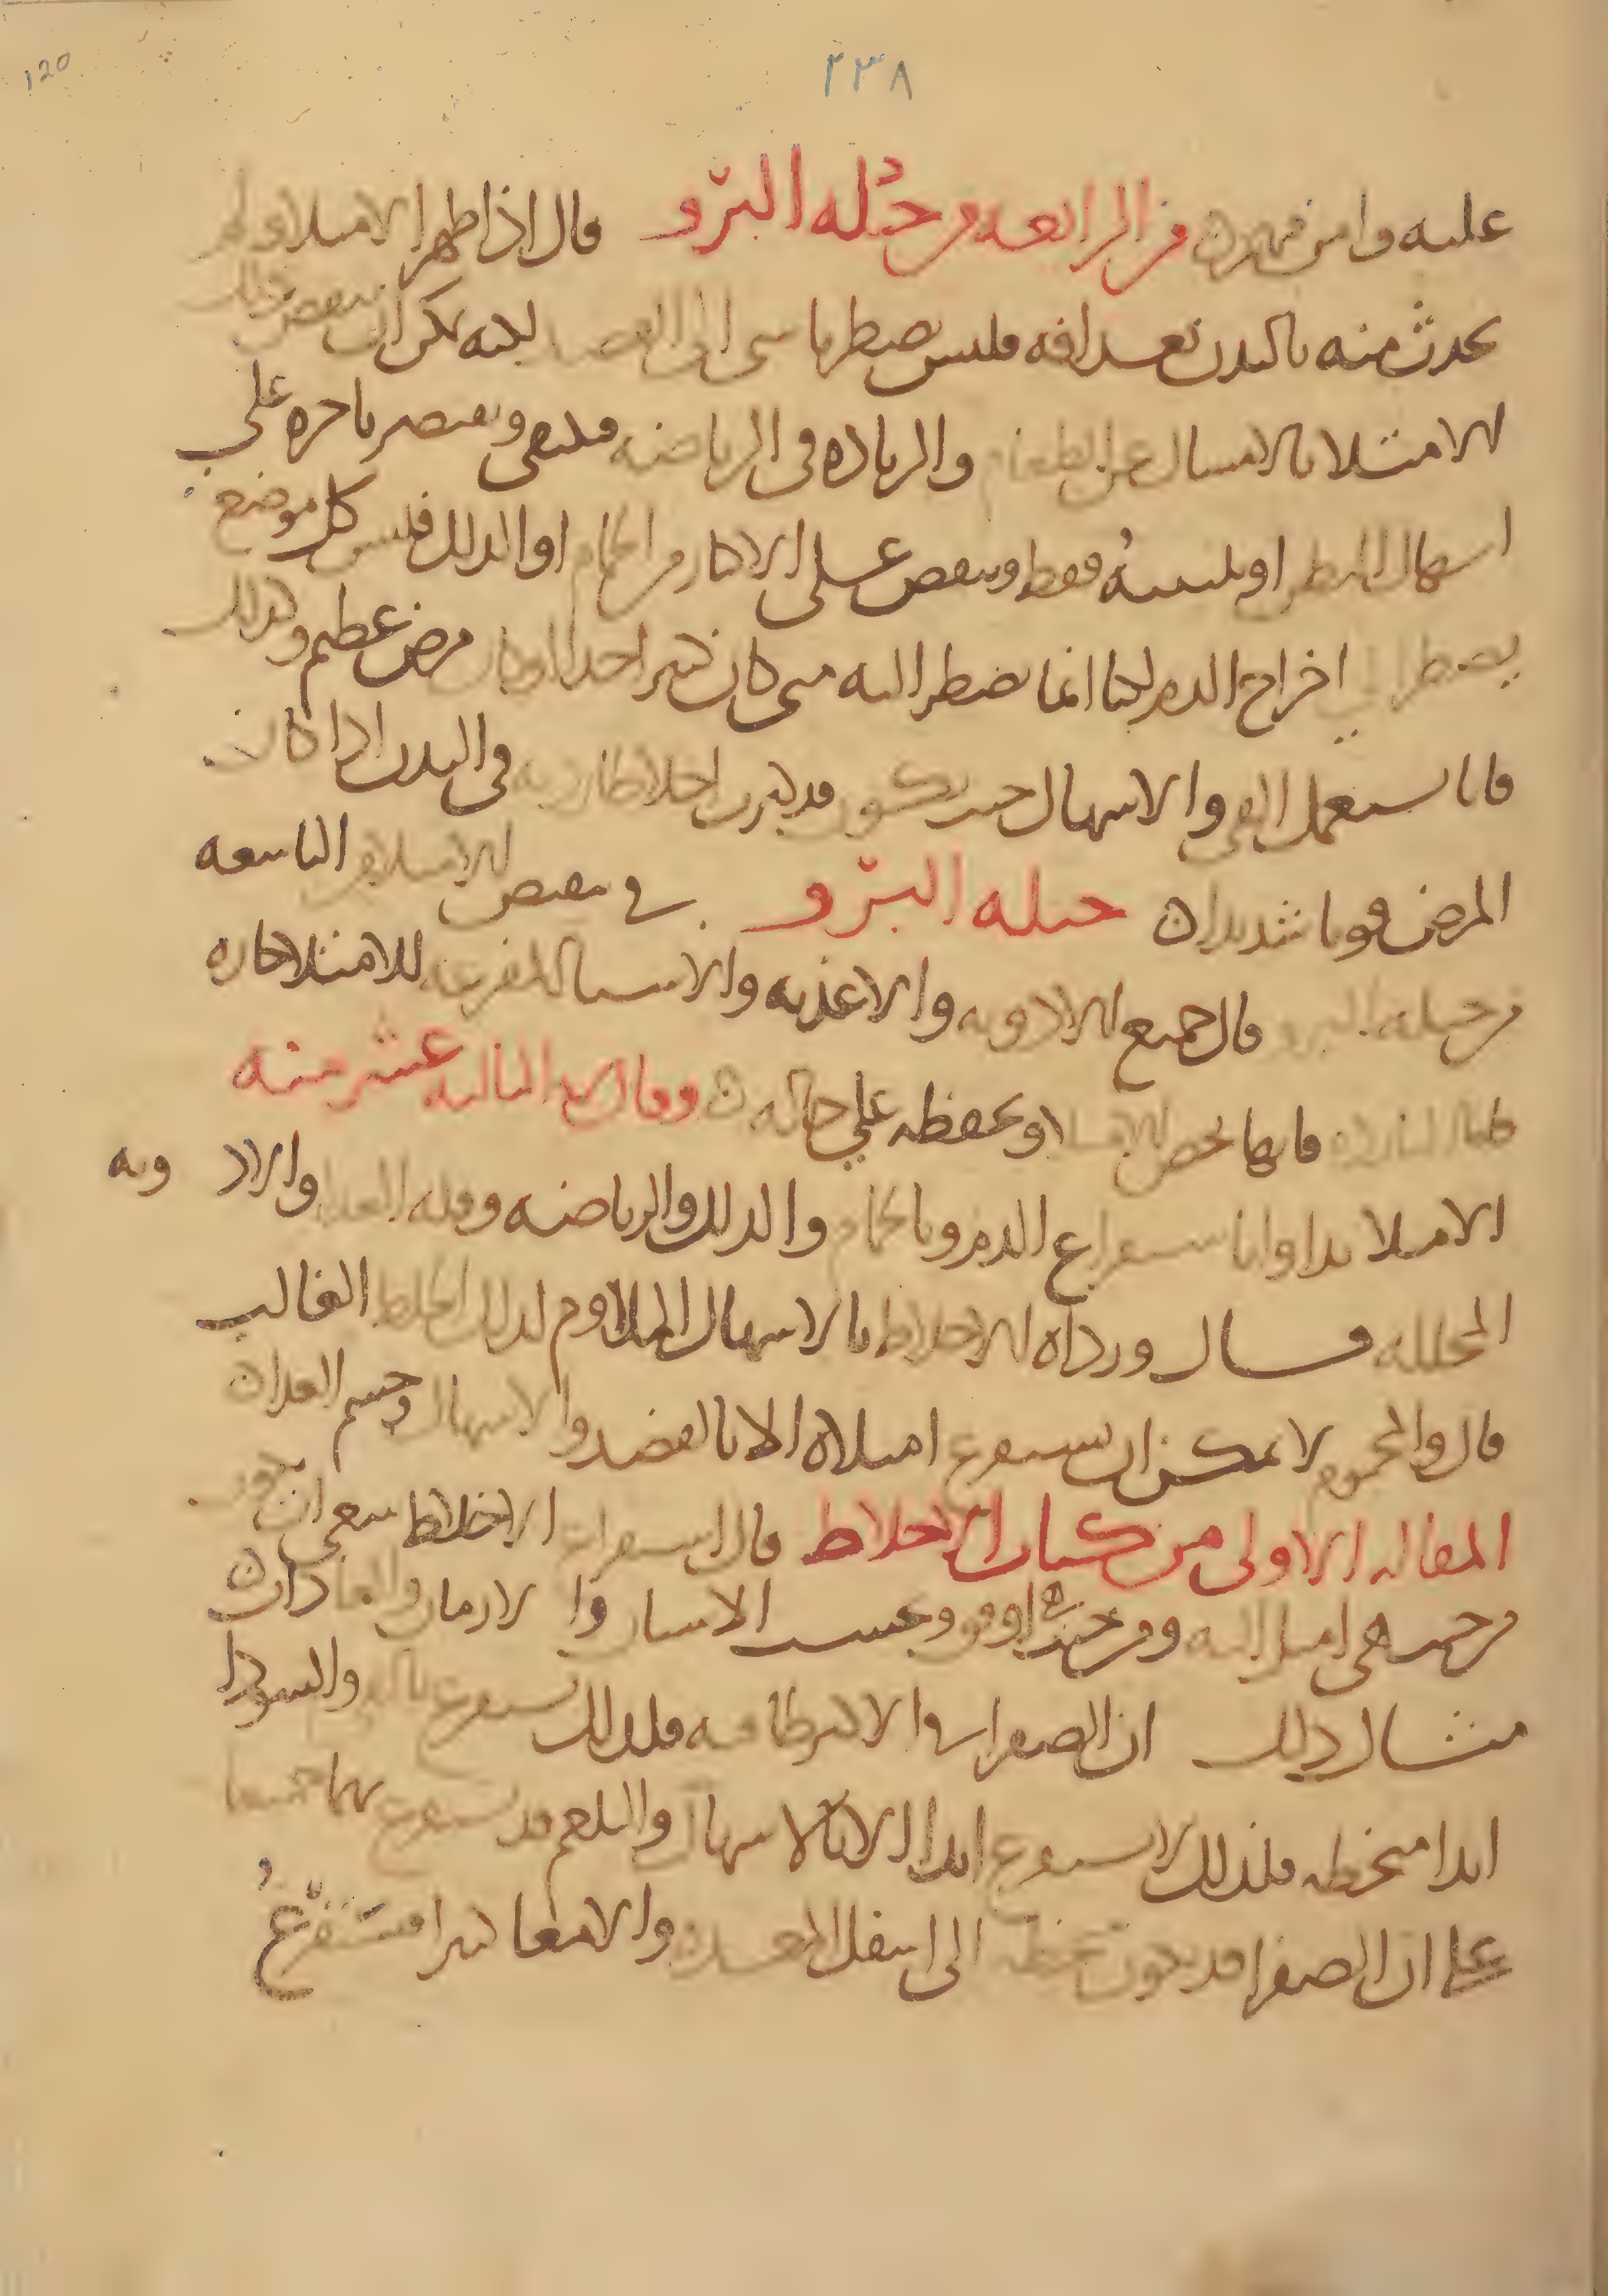 ٢٣٨
120
عليه وامن فهرن من الرابعه من حيله البرو قال اذا ظهر الامتلا ولم
يحدث منه بالبدن بعد افه فليس يضطرنا شي الى الفصد لكنه يمكن ان ينقص ذلك
الامتلا بالامساك عن الطعام والزياده في الرياضه ويقتصر باخره على
اسهال البطن او تليينه فقط وينقص على الاكثار من الحمام او الدلك فليس كل موضع
يضطر الى اخراج الدم لكنا انما نضطر اليه متى كان كثير احدا او كان مرض عظيم وكذلك
فانا نستعمل القي والاسهال حيث يكون قد كثرت اخلاط رديه في البدن اذا كان
المرض قويا شديدا ن حيله البرو في نقص الامتلا من التاسعه
من حيله البرو قال جميع الادويه والاغذيه والاشيا المفرغه للامتلا حاره
فاما البارده فانها تحصر الامتلا وتحفظه على حاله ن وقال في الثالثه عشر منه
الامتلا يداوا باستفراغ الدم وبالحمام والدلك والرياضه وقله الغذا والادويه
المحلله قال ورداه الاخلاط بالاسهال الملاوم لذلك الخلط الغالب
قال والمحموم لا يمكن ان يستفرغ امتلاه الا بالفصد والاسهال وحسم الغذا ن
المقاله الاولى من كتاب الاخلاط قال استفراغ الاخلاط ينبغي ان يكون
من حيث هي اميل اليه ومن حيث اوفق وبحسب الاسنان والازمان والعادات ن
مثال ذلك ان الصفرا في الاكثر طافيه فلذلك تستفرغ بالقي والسودا
ابدا منحطه فلذلك لا تستفرغ ابدا الا بالاسهال والبلغم قد يستفرغ بهما جميعا
على ان الصفرا قد تكون منحطه الى اسفل المعده والامعا كثيرا فتستفرغ